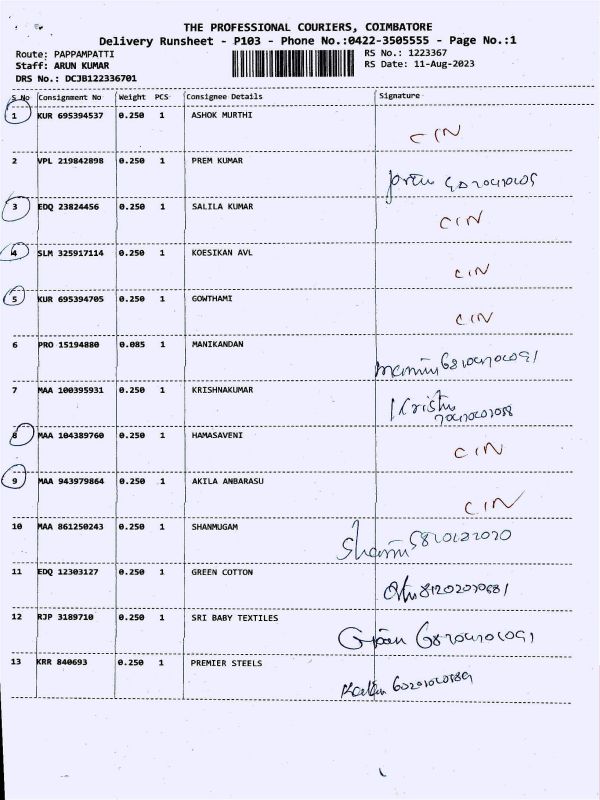 THE PROFESSIONAL COURIERS, COIMBATORE
Delivery Runsheet - P103 - Phone No.:0422-3505555 - Page No.:1
Route: PAPPAMPATTI
Staff: ARUN KUMAR
DRS No.: DCJB122336701
RS No.: 1223367
RS Date: 11-Aug-2023
S No Consignment No Weight PCS Consignee Details Signature
1 KUR 695394537 0.250 1 ASHOK MURTHI CIN
2 VPL 219842898 0.250 1 PREM KUMAR
3 EDQ 23824456 0.250 1 SALILA KUMAR CIN
4 SLM 325917114 0.250 1 KOESIKAN AVL CIN
5 KUR 695394705 0.250 1 GOWTHAMI CIN
6 PRO 15194880 0.085 1 MANIKANDAN
7 MAA 100395931 0.250 1 KRISHNAKUMAR
8 MAA 104389760 0.250 1 HAMASAVENI CIN
9 MAA 943979864 0.250 1 AKILA ANBARASU CIN
10 MAA 861250243 0.250 1 SHANMUGAM
11 EDQ 12303127 0.250 1 GREEN COTTON
12 RJP 3189710 0.250 1 SRI BABY TEXTILES
13 KRR 840693 0.250 1 PREMIER STEELS